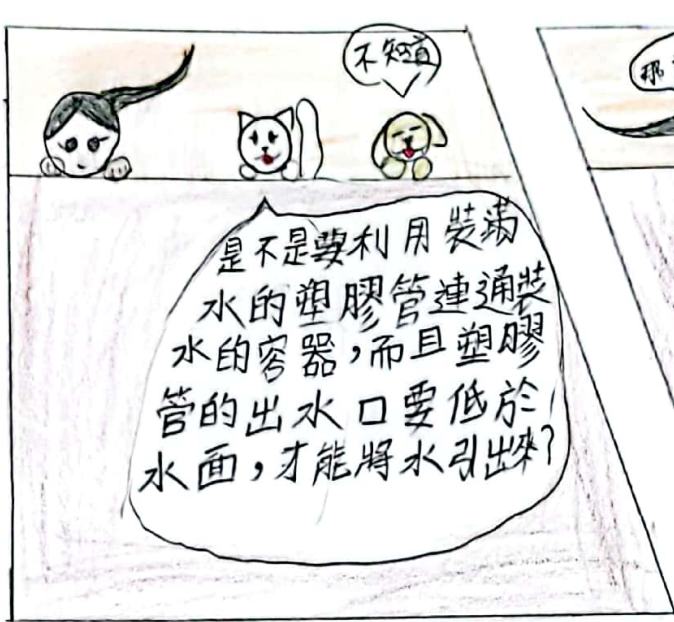 不知道
是不是要利用裝滿
水的塑膠管連通裝
水的容器，而且塑膠
管的出水口要低於
水面，才能將水引出來？
那